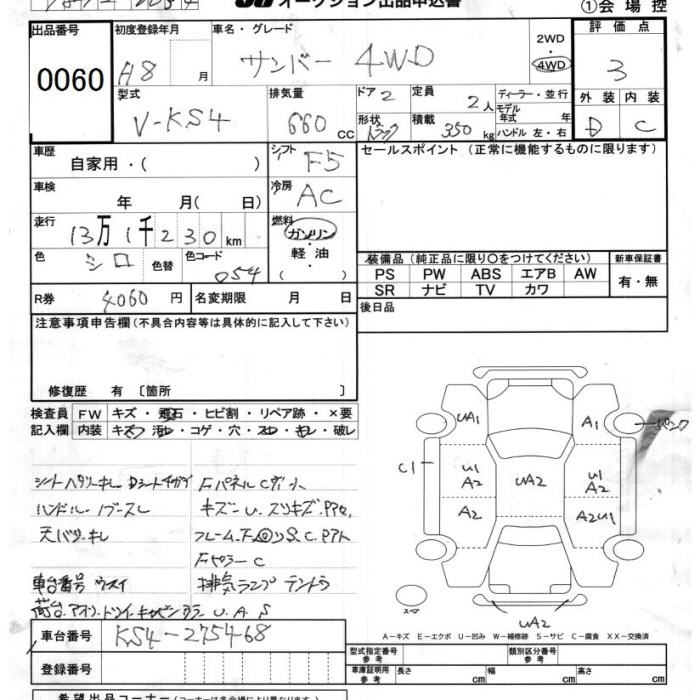 オークション出品申込書
①会場控
出品番号 0060
初度登録年月 H8 月
車名・グレード サンバー 4WD
2WD・4WD
評価点 3
外装 D 内装 C
型式 V-KS4
排気量 660 cc
ドア 2
形状 トラック
定員 2人
積載 350 kg
ディーラー・並行
モデル年式 年
ハンドル 左・右
車歴 自家用・( )
シフト F5
セールスポイント (正常に機能するものに限ります)
車検 年 月( 日)
冷房 AC
走行 13万1千230km
燃料 ガソリン・軽油 ( )
色 シロ 色替 色コード 054
装備品 (純正品に限り○をつけてください)
新車保証書 有・無
PS PW ABS エアB AW
SR ナビ TV カワ
R券 4060円 名変期限 月 日
後日品
注意事項申告欄 (不具合内容等は具体的に記入して下さい)
修復歴 有 〔箇所 〕
検査員記入欄
FW キズ・飛石・ヒビ割・リペア跡・×要
内装 キズ・汚レ・コゲ・穴・スレ・キレ・破レ
シートヘタリ・キレ Dシートチガイ
ハンドル・ノブスレ
天バリキレ
車台番号 ウスイ
Fパネル
排気ランプ テントウ
UA1 A1
C1 U1 A2 UA2 U1 A2
A2 A2U1
スペア
UA2
A－キズ E－エクボ U－凹み W－補修跡 S－サビ C－腐食 XX－交換済
車台番号 KS4-275468
登録番号
型式指定番号 参考 類別区分番号 参考
車庫証明用 参考 長さ cm 幅 cm 高さ cm
希望出品コーナー (コーナーは各会場により異なります)